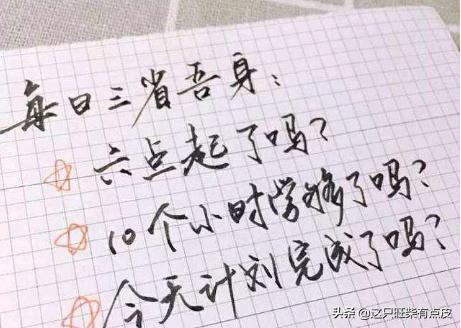 每日三省吾身:
六点起了吗?
10个小时学够了吗?
今天计划完成了吗?
头条 @这只旺柴有点皮